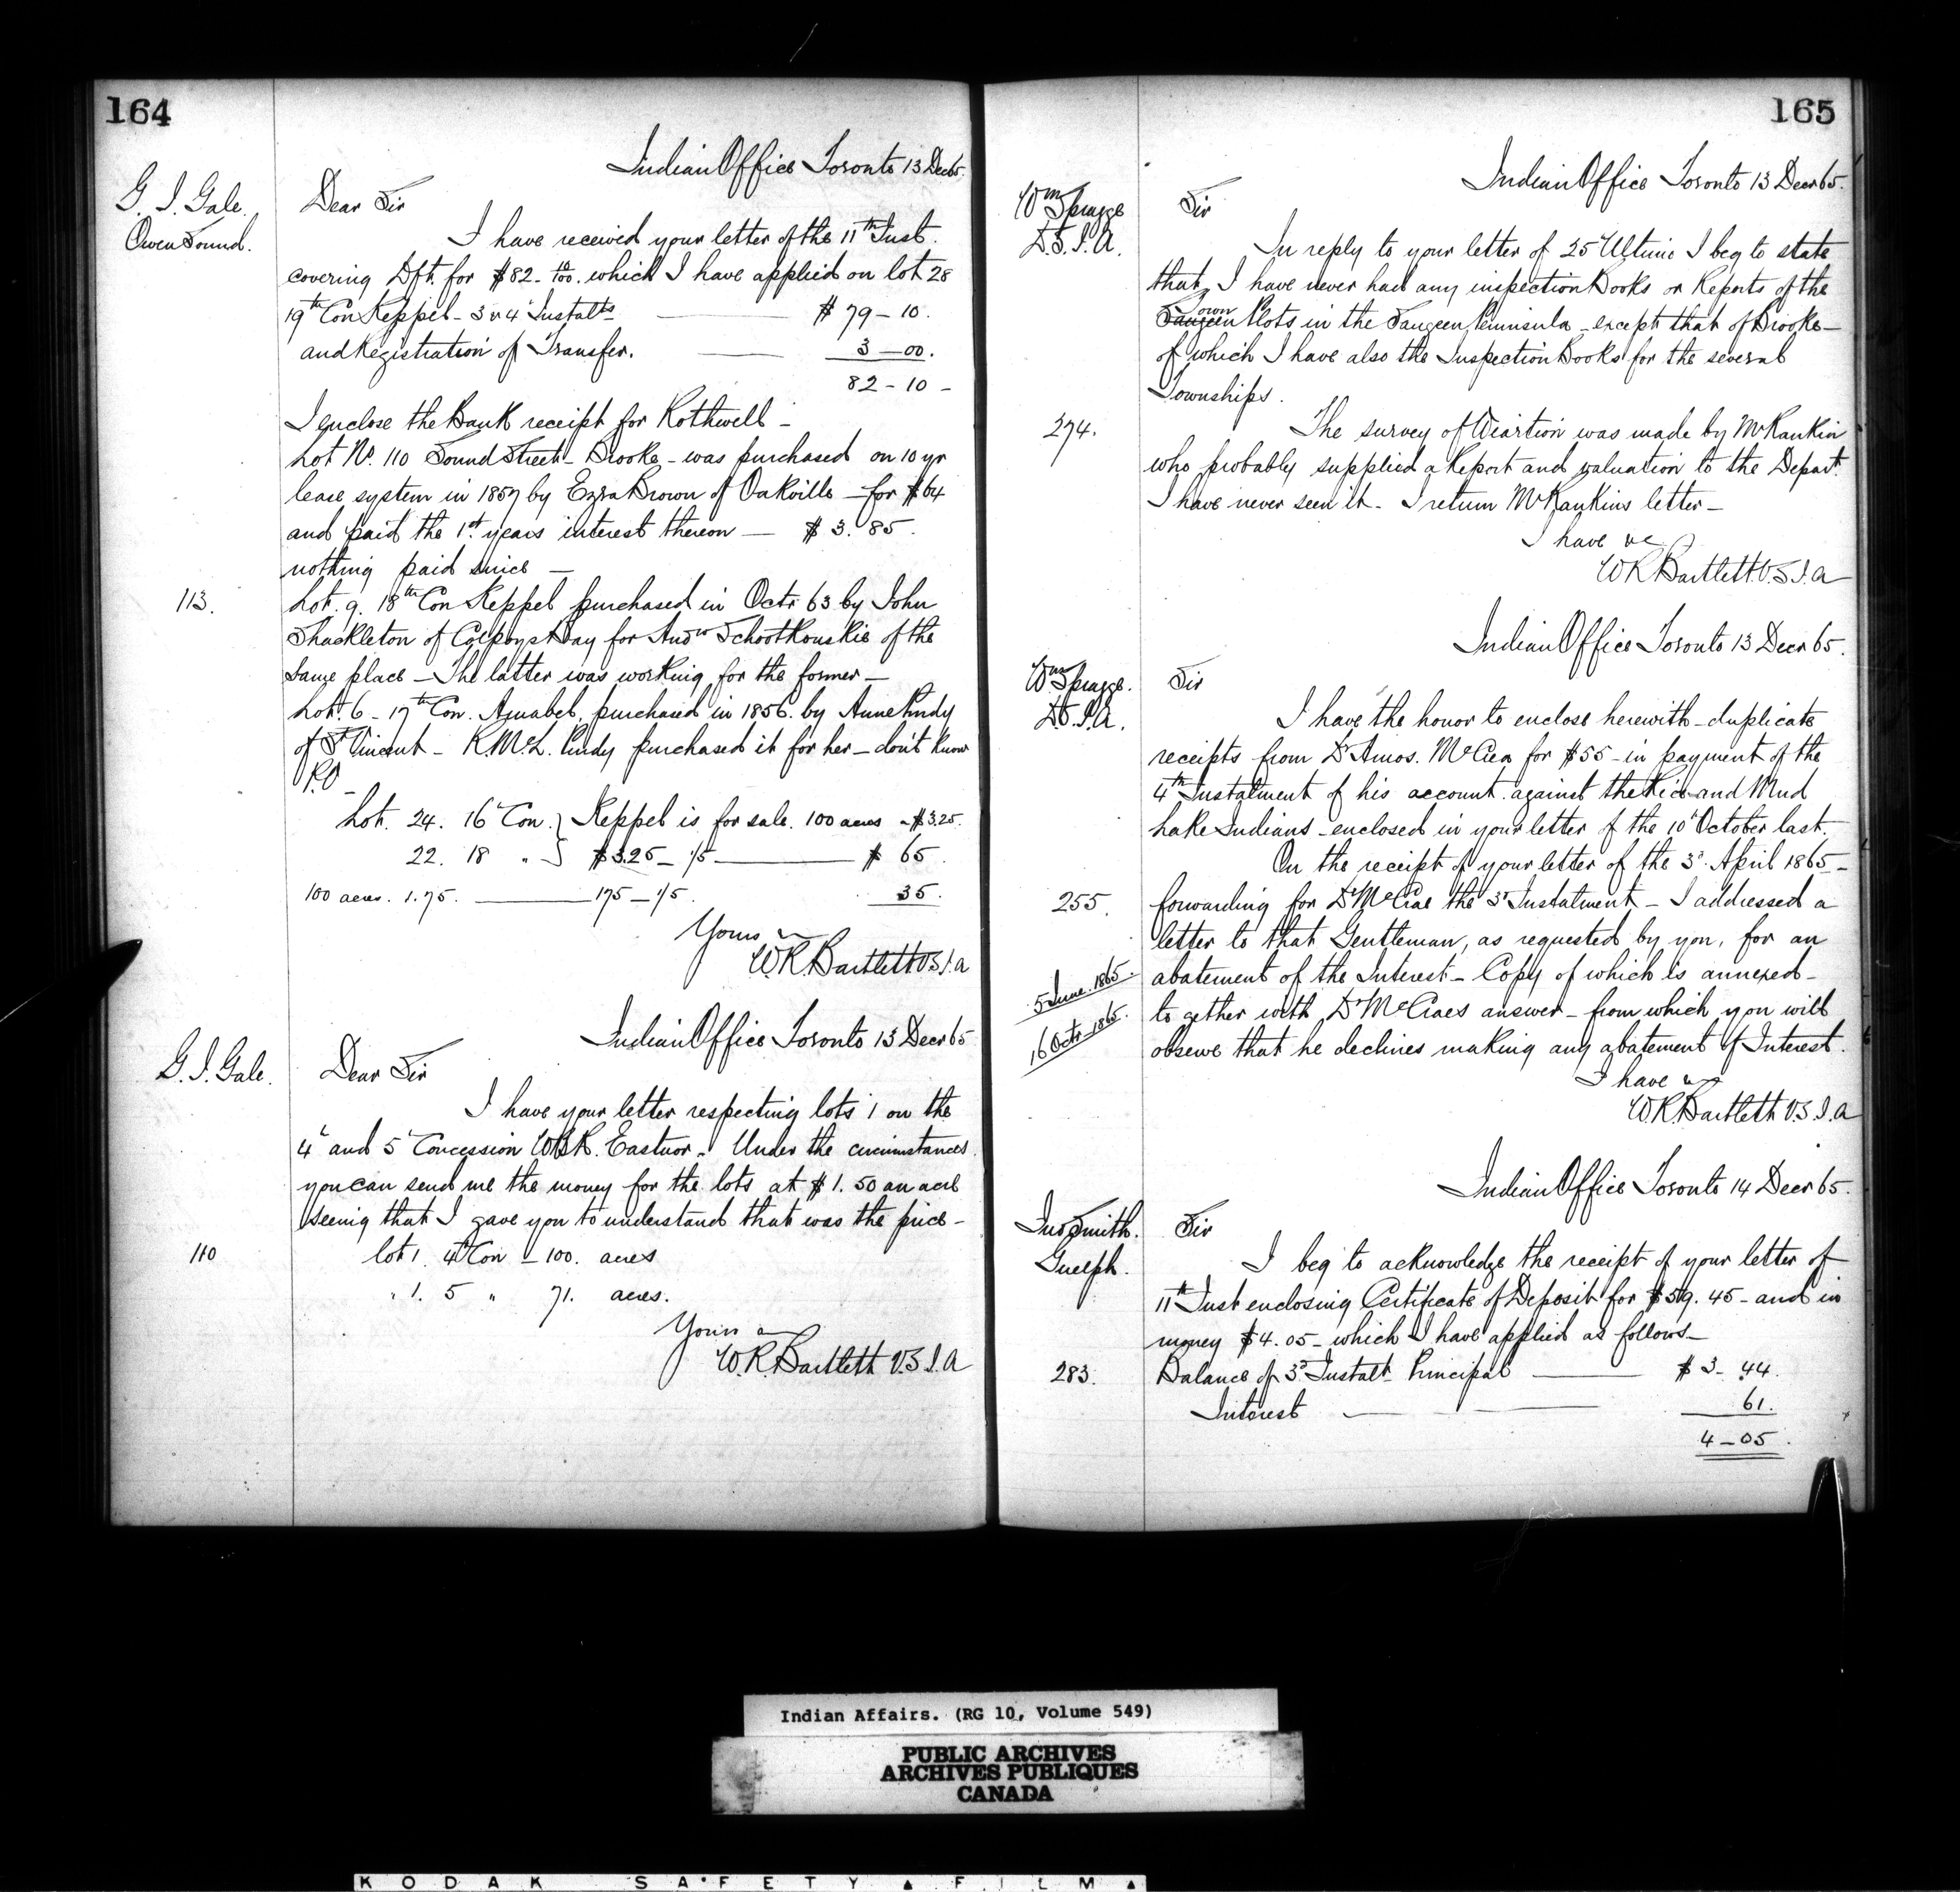 164
Indian Office Toronto 13 Dec 65.
G. J. Gale.
Owen Sound.
Dear Sir
I have received your letter of the 11th Inst.
covering Dft. for $82-10/100. which I have applied on lot 28
19th Con Keppel - 3 & 4 Instalts $ 79-10.
and Registration of Transfer. 3-00.
82-10-
I enclose the Bank receipt for Rothwell -
Lot No. 110 Sound Street - Brooke - was purchased on 10 yr
lease system in 1857 by Ezra Brown of Oakville - for $64
and paid the 1st years interest thereon - $3.85.
nothing paid since -
113.
Lot. 9. 18th Con Keppel purchased in Octr 63 by John
Shackleton of Colpoys Bay for Andw Schootkouskie of the
same place - The latter was working for the former -
Lot. 6 - 17th Con. Amabel, purchased in 1856. by Anne Purdy
of St Vincent - R. McL. Purdy purchased it for her - don't know
P.O -
Lot. 24. 16 Con. } Keppel is for sale. 100 acres - $3.25.
22. 18 " } $3.25 - 1/5 $ 65.
100 acres. 1.75. 175 - 1/5. 35.
Yours
W.R. Bartlett V.S.I.A
Indian Office Toronto 13 Decr 65
G. J. Gale.
Dear Sir
I have your letter respecting lots 1 on the
4th and 5th Concession W.B.R. Eastnor. Under the circumstances
you can send me the money for the lots at $1.50 an acre
seeing that I gave you to understand that was the price -
110
lot 1. 4th Con - 100. acres
" 1. 5 " 71. acres.
Yours
W.R. Bartlett V.S.I.A
165
Indian Office Toronto 13 Decr 65.
Wm Spragge
D.S.I.A.
Sir
In reply to your letter of 25 Ultimo I beg to state
that I have never had any inspection Books or Reports of the
Town
Saugeen Plots in the Saugeen Peninsula - except that of Brooke -
of which I have also the Inspection Books for the several
Townships.
274.
The survey of Wiartion was made by Mr Rankin
who probably supplied a Report and valuation to the Depart.
I have never seen it - I return Mr Rankins letter -
I have &c
W R Bartlett. V.S.I.A
Indian Office Toronto 13 Decr 65.
Wm Spragge.
D.S.I.A.
Sir
I have the honor to enclose herewith - duplicate
receipts from Dr Amos. McCrea for $55 - in payment of the
4th Instalment of his account against the Rice and Mud
Lake Indians - enclosed in your letter of the 10th October last.
On the receipt of your letter of the 3d. April 1865 -
255.
forwarding for Dr McCrae the 3d Instalment - I addressed a
letter to that Gentleman, as requested by you, for an
5 June. 1865.
abatement of the Interest - Copy of which is annexed -
16 Octr 1865.
to gether with Dr McCraes answer - from which you will
observe that he declines making any abatement of Interest.
I have
W.R. Bartlett V.S.I.A
Indian Office Toronto 14 Decr 65.
Jno Smith.
Guelph.
Sir
I beg to acknowledge the receipt of your letter of
11th Inst enclosing Certificate of Deposit for $59.45 - and in
money $4.05 - which I have applied as follows -
283.
Balance of 3d Instalt. Principal $ 3-44.
Interest 61.
4-05.
Indian Affairs. (RG 10, Volume 549)
PUBLIC ARCHIVES
ARCHIVES PUBLIQUES
CANADA
KODAK SAFETY FILM